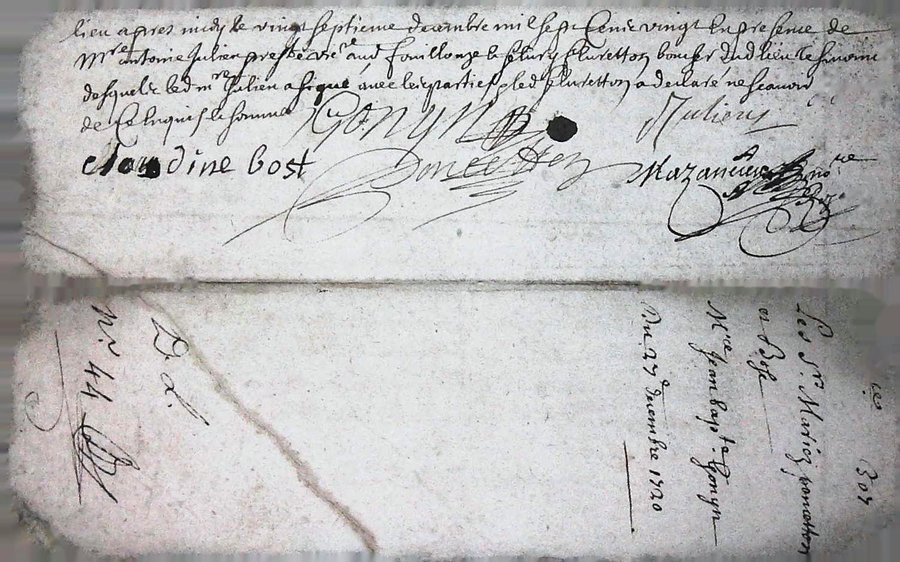 lieu apres midy le vingt septieme decembre mil sept Cent vingt En presence de
Mre antoine Julien prestre aud fouillouze & fleury fluretton dud lieu
desquels led mre Julien a signé avec les parties & led fluretton a declaré ne scavoir
de ce Enquis & somme
Gonyn Julien
clandine bost Poncetton Mazancieu nore
Les Srs Mariez poncetton
et Bost
Mre Jean bapte Gonyn
Du 27 decembre 1720
D. L.
nr 44